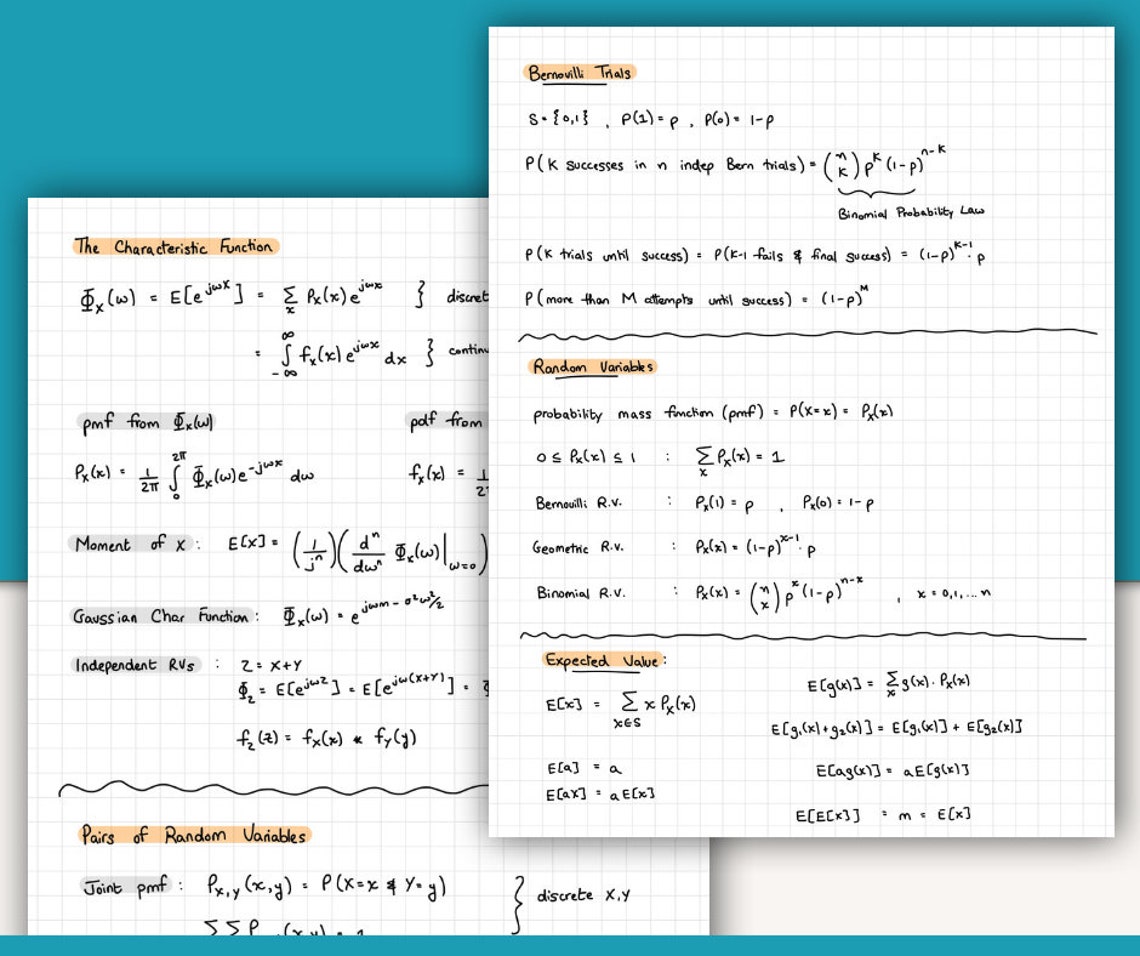 Bernovilli Trials
S = {0,1} , P(1) = p , P(0) = 1-p
P(K successes in n indep Bern trials) = (n K) p^K (1-p)^n-K
Binomial Probability Law
P(K trials until success) = P(K-1 fails & final success) = (1-p)^K-1 · p
P(more than M attempts until success) = (1-p)^M
Random Variables
probability mass function (pmf) = P(X=x) = Px(x)
0 ≤ Px(x) ≤ 1 : ∑x Px(x) = 1
Bernouilli R.v. : Px(1) = p , Px(0) = 1-p
Geometric R.v. : Px(x) = (1-p)^x-1 · p
Binomial R.V. : Px(x) = (n x) p^x (1-p)^n-x , x = 0,1,...n
Expected Value:
E[x] = ∑x∈S x Px(x)
E[g(x)] = ∑x g(x). Px(x)
E[g1(x)+g2(x)] = E[g1(x)] + E[g2(x)]
E[a] = a
E[ag(x)] = aE[g(x)]
E[ax] = aE[x]
E[E[x]] = m = E[x]
The Characteristic Function
Φx(ω) = E[e^jωX] = ∑x Px(x) e^jωx } discret
= ∫-∞^∞ fx(x) e^jωx dx } contin
pmf from Φx(ω)
pdf from
Px(x) = 1/2π ∫0^2π Φx(ω) e^-jωx dω
fx(x) = 1
Moment of X : E[X] = (1/j^n)(d^n/dω^n Φx(ω)|ω=0)
Gaussian Char Function : Φx(ω) = e^jωm - σ²ω²/2
Independent RVs : Z = X+Y
Φz = E[e^jωZ] = E[e^jω(X+Y)] =
fz(z) = fx(x) * fy(y)
Pairs of Random Variables
Joint pmf : Px,y(x,y) = P(X=x & Y=y)
} discrete X,Y